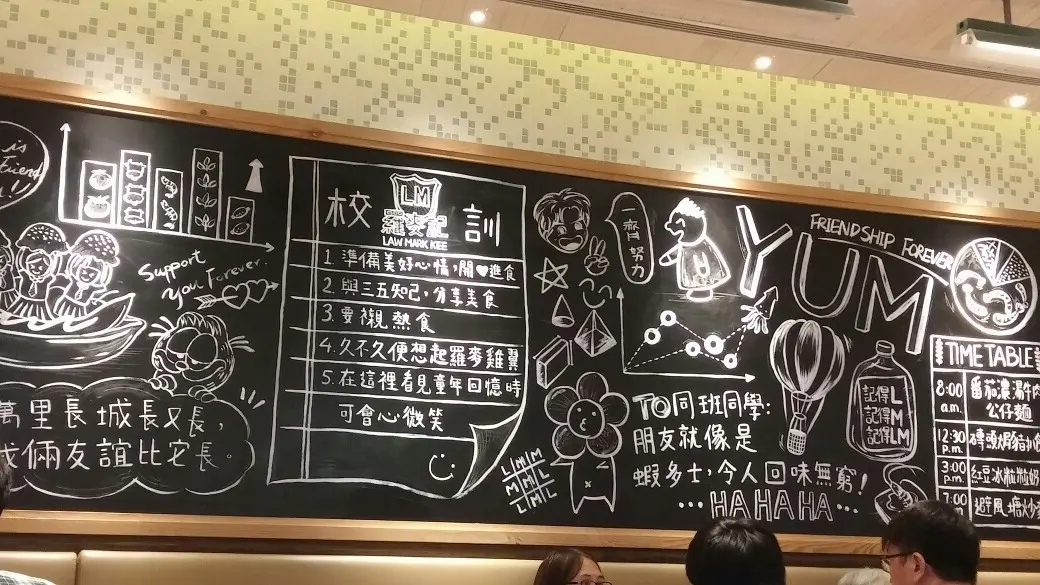 is
Friend
Support
you Forever.
萬里長城長又長，
我倆友誼比它長。
校訓
LM
羅麥記
LAW MARK KEE
1. 準備美好心情，開♥進食
2. 與三五知己，分享美食
3. 要襯熱食
4. 久不久便想起羅麥雞翼
5. 在這裡看見童年回憶時
可會心微笑
一齊努力
YUM
FRIENDSHIP FOREVER
TO同班同學：
朋友就像是
蝦多士，令人回味無窮！
...HA HA HA...
記得L
記得M
記得LM
TIME TABLE
8:00 a.m. 番茄濃湯牛肉
公仔麵
12:30 p.m. 焗豬扒飯
3:00 p.m. 紅豆冰粒粒奶
7:00 避風塘炒